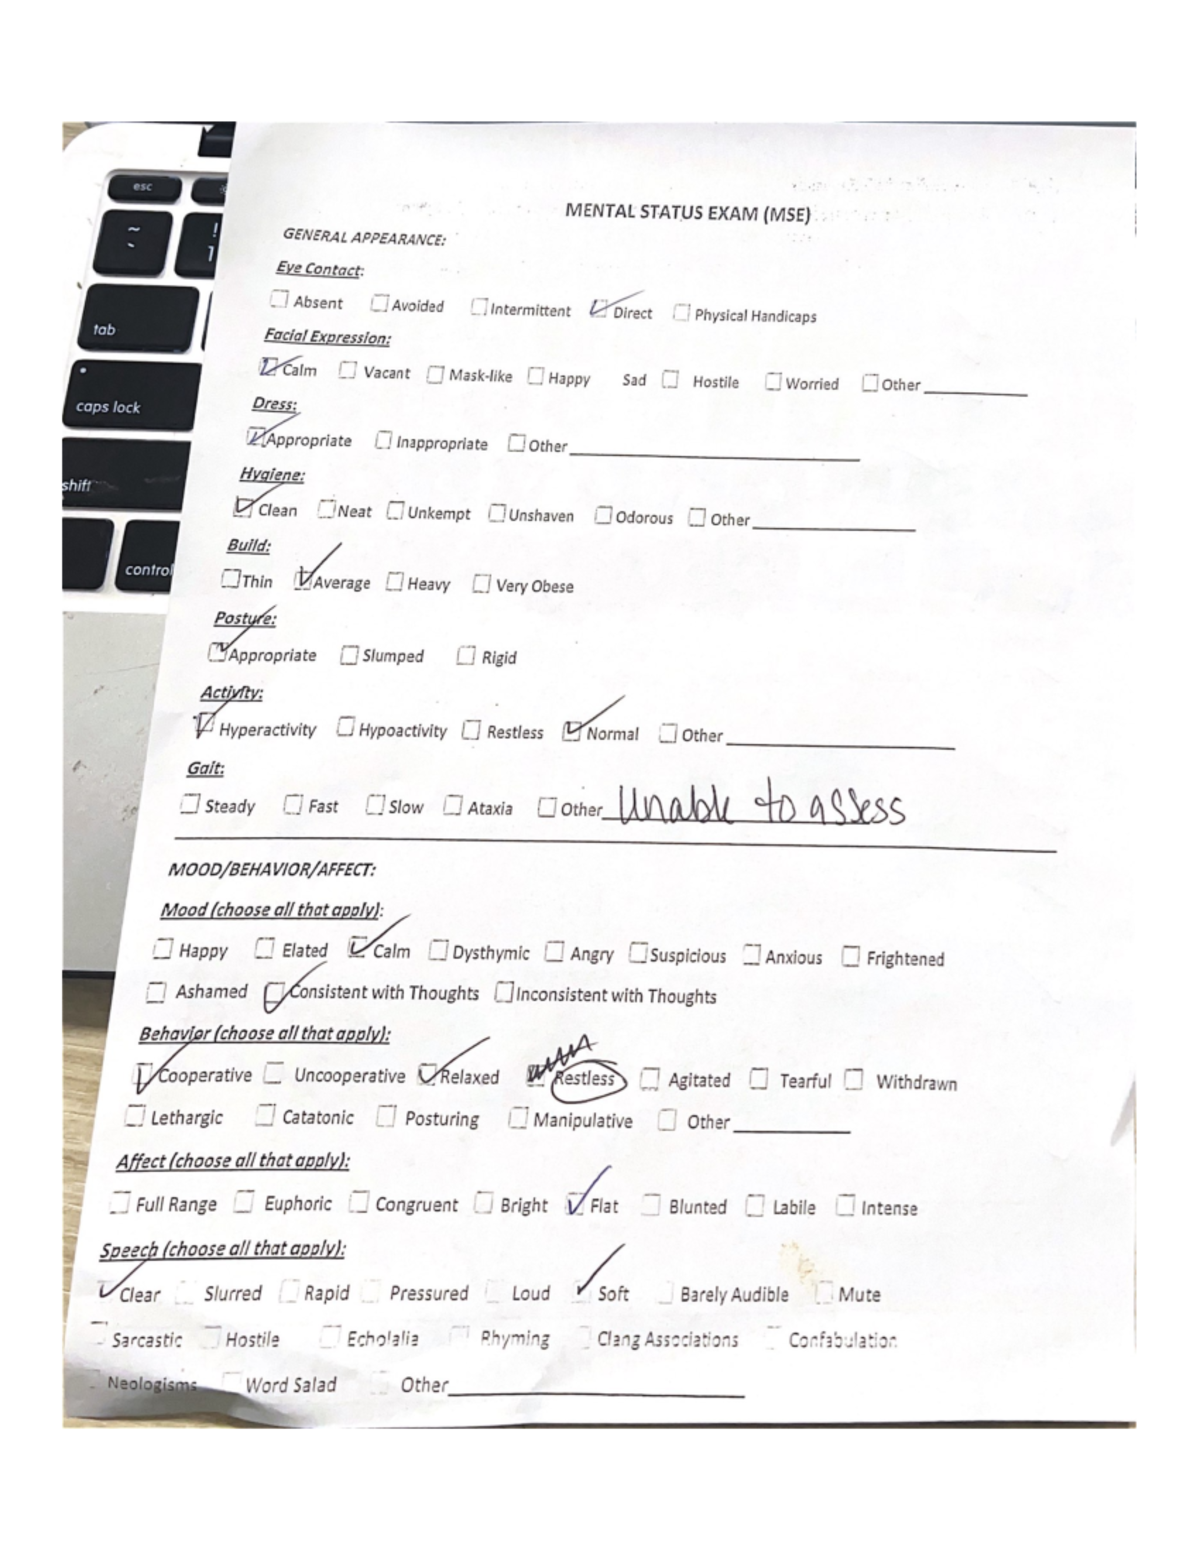 esc
MENTAL STATUS EXAM (MSE)
GENERAL APPEARANCE:
~
!
`
1
Eye Contact:
☐ Absent ☐ Avoided ☐ Intermittent ☑ Direct ☐ Physical Handicaps
tab
Facial Expression:
☑ Calm ☐ Vacant ☐ Mask-like ☐ Happy Sad ☐ Hostile ☐ Worried ☐ Other
caps lock
Dress:
☑ Appropriate ☐ Inappropriate ☐ Other
shift
Hygiene:
☑ Clean ☐ Neat ☐ Unkempt ☐ Unshaven ☐ Odorous ☐ Other
control
Build:
☐ Thin ☑ Average ☐ Heavy ☐ Very Obese
Posture:
☑ Appropriate ☐ Slumped ☐ Rigid
Activity:
☑ Hyperactivity ☐ Hypoactivity ☐ Restless ☑ Normal ☐ Other
Gait:
☐ Steady ☐ Fast ☐ Slow ☐ Ataxia ☐ Other Unable to assess
MOOD/BEHAVIOR/AFFECT:
Mood (choose all that apply):
☐ Happy ☐ Elated ☑ Calm ☐ Dysthymic ☐ Angry ☐ Suspicious ☐ Anxious ☐ Frightened
☐ Ashamed ☑ Consistent with Thoughts ☐ Inconsistent with Thoughts
Behavior (choose all that apply):
☑ Cooperative ☐ Uncooperative ☑ Relaxed ☑ Restless ☐ Agitated ☐ Tearful ☐ Withdrawn
☐ Lethargic ☐ Catatonic ☐ Posturing ☐ Manipulative ☐ Other
Affect (choose all that apply):
☐ Full Range ☐ Euphoric ☐ Congruent ☐ Bright ☑ Flat ☐ Blunted ☐ Labile ☐ Intense
Speech (choose all that apply):
☑ Clear ☐ Slurred ☐ Rapid ☐ Pressured ☐ Loud ☑ Soft ☐ Barely Audible ☐ Mute
☐ Sarcastic ☐ Hostile ☐ Echolalia ☐ Rhyming ☐ Clang Associations ☐ Confabulation
☐ Neologisms ☐ Word Salad ☐ Other